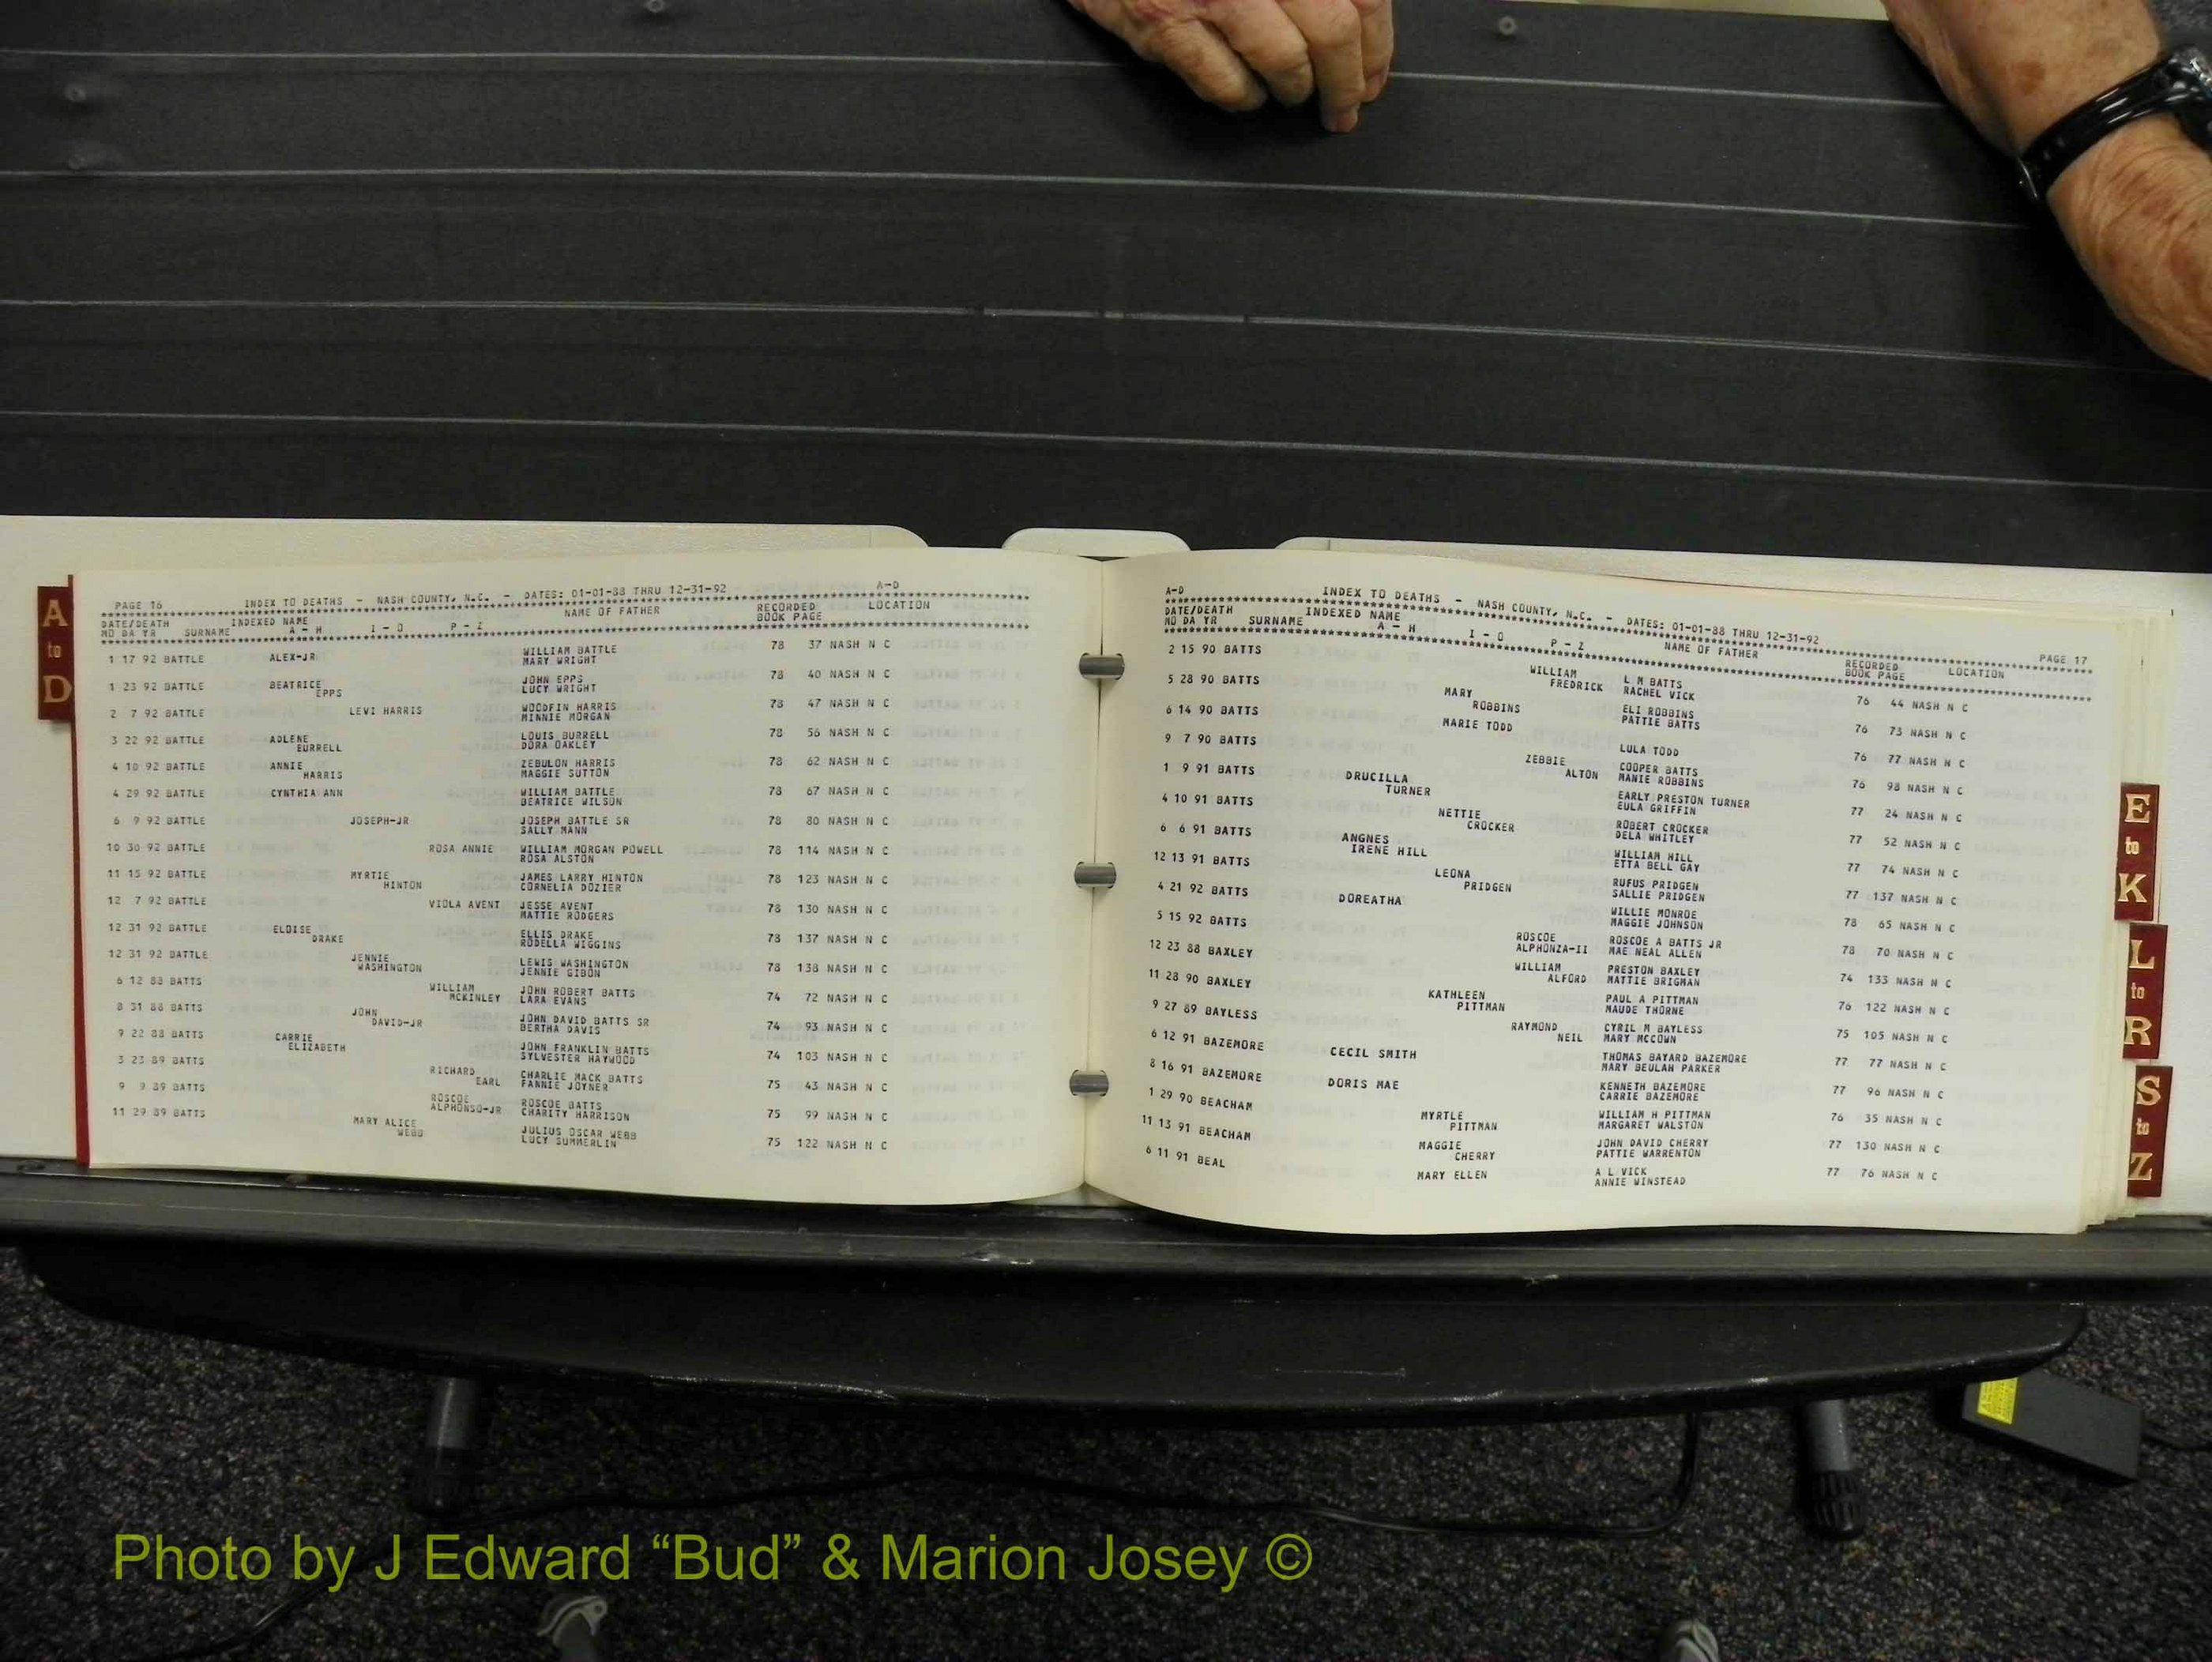 A
to
D
PAGE 16 INDEX TO DEATHS - NASH COUNTY, N.C. - DATES: 01-01-88 THRU 12-31-92 A-D
DATE/DEATH INDEXED NAME NAME OF FATHER RECORDED LOCATION
MO DA YR SURNAME A - H I - O P - Z BOOK PAGE
1 17 92 BATTLE ALEX-JR WILLIAM BATTLE 78 37 NASH N C
MARY WRIGHT
1 23 92 BATTLE BEATRICE JOHN EPPS 78 40 NASH N C
EPPS LUCY WRIGHT
2 7 92 BATTLE LEVI HARRIS WOODFIN HARRIS 78 47 NASH N C
MINNIE MORGAN
3 22 92 BATTLE ADLENE LOUIS BURRELL 78 56 NASH N C
BURRELL DORA OAKLEY
4 10 92 BATTLE ANNIE ZEBULON HARRIS 78 62 NASH N C
HARRIS MAGGIE SUTTON
4 29 92 BATTLE CYNTHIA ANN WILLIAM BATTLE 78 67 NASH N C
BEATRICE WILSON
6 9 92 BATTLE JOSEPH-JR JOSEPH BATTLE SR 78 80 NASH N C
SALLY MANN
10 30 92 BATTLE ROSA ANNIE WILLIAM MORGAN POWELL 78 114 NASH N C
ROSA ALSTON
11 15 92 BATTLE MYRTIE JAMES LARRY HINTON 78 123 NASH N C
HINTON CORNELIA DOZIER
12 7 92 BATTLE VIOLA AVENT JESSE AVENT 78 130 NASH N C
MATTIE RODGERS
12 31 92 BATTLE ELOISE ELLIS DRAKE 78 137 NASH N C
DRAKE RODELLA WIGGINS
12 31 92 BATTLE JENNIE LEWIS WASHINGTON 78 138 NASH N C
WASHINGTON JENNIE GIBON
6 12 88 BATTS WILLIAM JOHN ROBERT BATTS 74 72 NASH N C
MCKINLEY LARA EVANS
8 31 88 BATTS JOHN JOHN DAVID BATTS SR 74 93 NASH N C
DAVID-JR BERTHA DAVIS
9 22 88 BATTS CARRIE JOHN FRANKLIN BATTS 74 103 NASH N C
ELIZABETH SYLVESTER HAYWOOD
3 23 89 BATTS RICHARD CHARLIE MACK BATTS 75 43 NASH N C
EARL FANNIE JOYNER
9 9 89 BATTS ROSCOE ROSCOE BATTS 75 99 NASH N C
ALPHONSO-JR CHARITY HARRISON
11 29 89 BATTS MARY ALICE JULIUS OSCAR WEBB 75 122 NASH N C
WEBB LUCY SUMMERLIN
A-D INDEX TO DEATHS - NASH COUNTY, N.C. - DATES: 01-01-88 THRU 12-31-92 PAGE 17
DATE/DEATH INDEXED NAME NAME OF FATHER RECORDED LOCATION
MO DA YR SURNAME A - H I - O P - Z BOOK PAGE
2 15 90 BATTS WILLIAM L M BATTS 76 44 NASH N C
FREDRICK RACHEL VICK
5 28 90 BATTS MARY ELI ROBBINS 76 73 NASH N C
ROBBINS PATTIE BATTS
6 14 90 BATTS MARIE TODD 76 77 NASH N C
LULA TODD
9 7 90 BATTS ZEBBIE COOPER BATTS 76 98 NASH N C
ALTON MANIE ROBBINS
1 9 91 BATTS DRUCILLA EARLY PRESTON TURNER 77 24 NASH N C
TURNER EULA GRIFFIN
4 10 91 BATTS NETTIE ROBERT CROCKER 77 52 NASH N C
CROCKER DELA WHITLEY
6 6 91 BATTS ANGNES WILLIAM HILL 77 74 NASH N C
IRENE HILL ETTA BELL GAY
12 13 91 BATTS LEONA RUFUS PRIDGEN 77 137 NASH N C
PRIDGEN SALLIE PRIDGEN
4 21 92 BATTS DOREATHA WILLIE MONROE 78 65 NASH N C
MAGGIE JOHNSON
5 15 92 BATTS ROSCOE ROSCOE A BATTS JR 78 70 NASH N C
ALPHONZA-II MAE NEAL ALLEN
12 23 88 BAXLEY WILLIAM PRESTON BAXLEY 74 133 NASH N C
ALFORD MATTIE BRIGMAN
11 28 90 BAXLEY KATHLEEN PAUL A PITTMAN 76 122 NASH N C
PITTMAN MAUDE THORNE
9 27 89 BAYLESS RAYMOND CYRIL M BAYLESS 75 105 NASH N C
NEIL MARY MCCOWN
6 12 91 BAZEMORE CECIL SMITH THOMAS BAYARD BAZEMORE 77 77 NASH N C
MARY BEULAH PARKER
8 16 91 BAZEMORE DORIS MAE KENNETH BAZEMORE 77 96 NASH N C
CARRIE BAZEMORE
1 29 90 BEACHAM MYRTLE WILLIAM H PITTMAN 76 35 NASH N C
PITTMAN MARGARET WALSTON
11 13 91 BEACHAM MAGGIE JOHN DAVID CHERRY 77 130 NASH N C
CHERRY PATTIE WARRENTON
6 11 91 BEAL MARY ELLEN A L VICK 77 76 NASH N C
ANNIE WINSTEAD
E
to
K
L
to
R
S
to
Z
Photo by J Edward “Bud” & Marion Josey ©